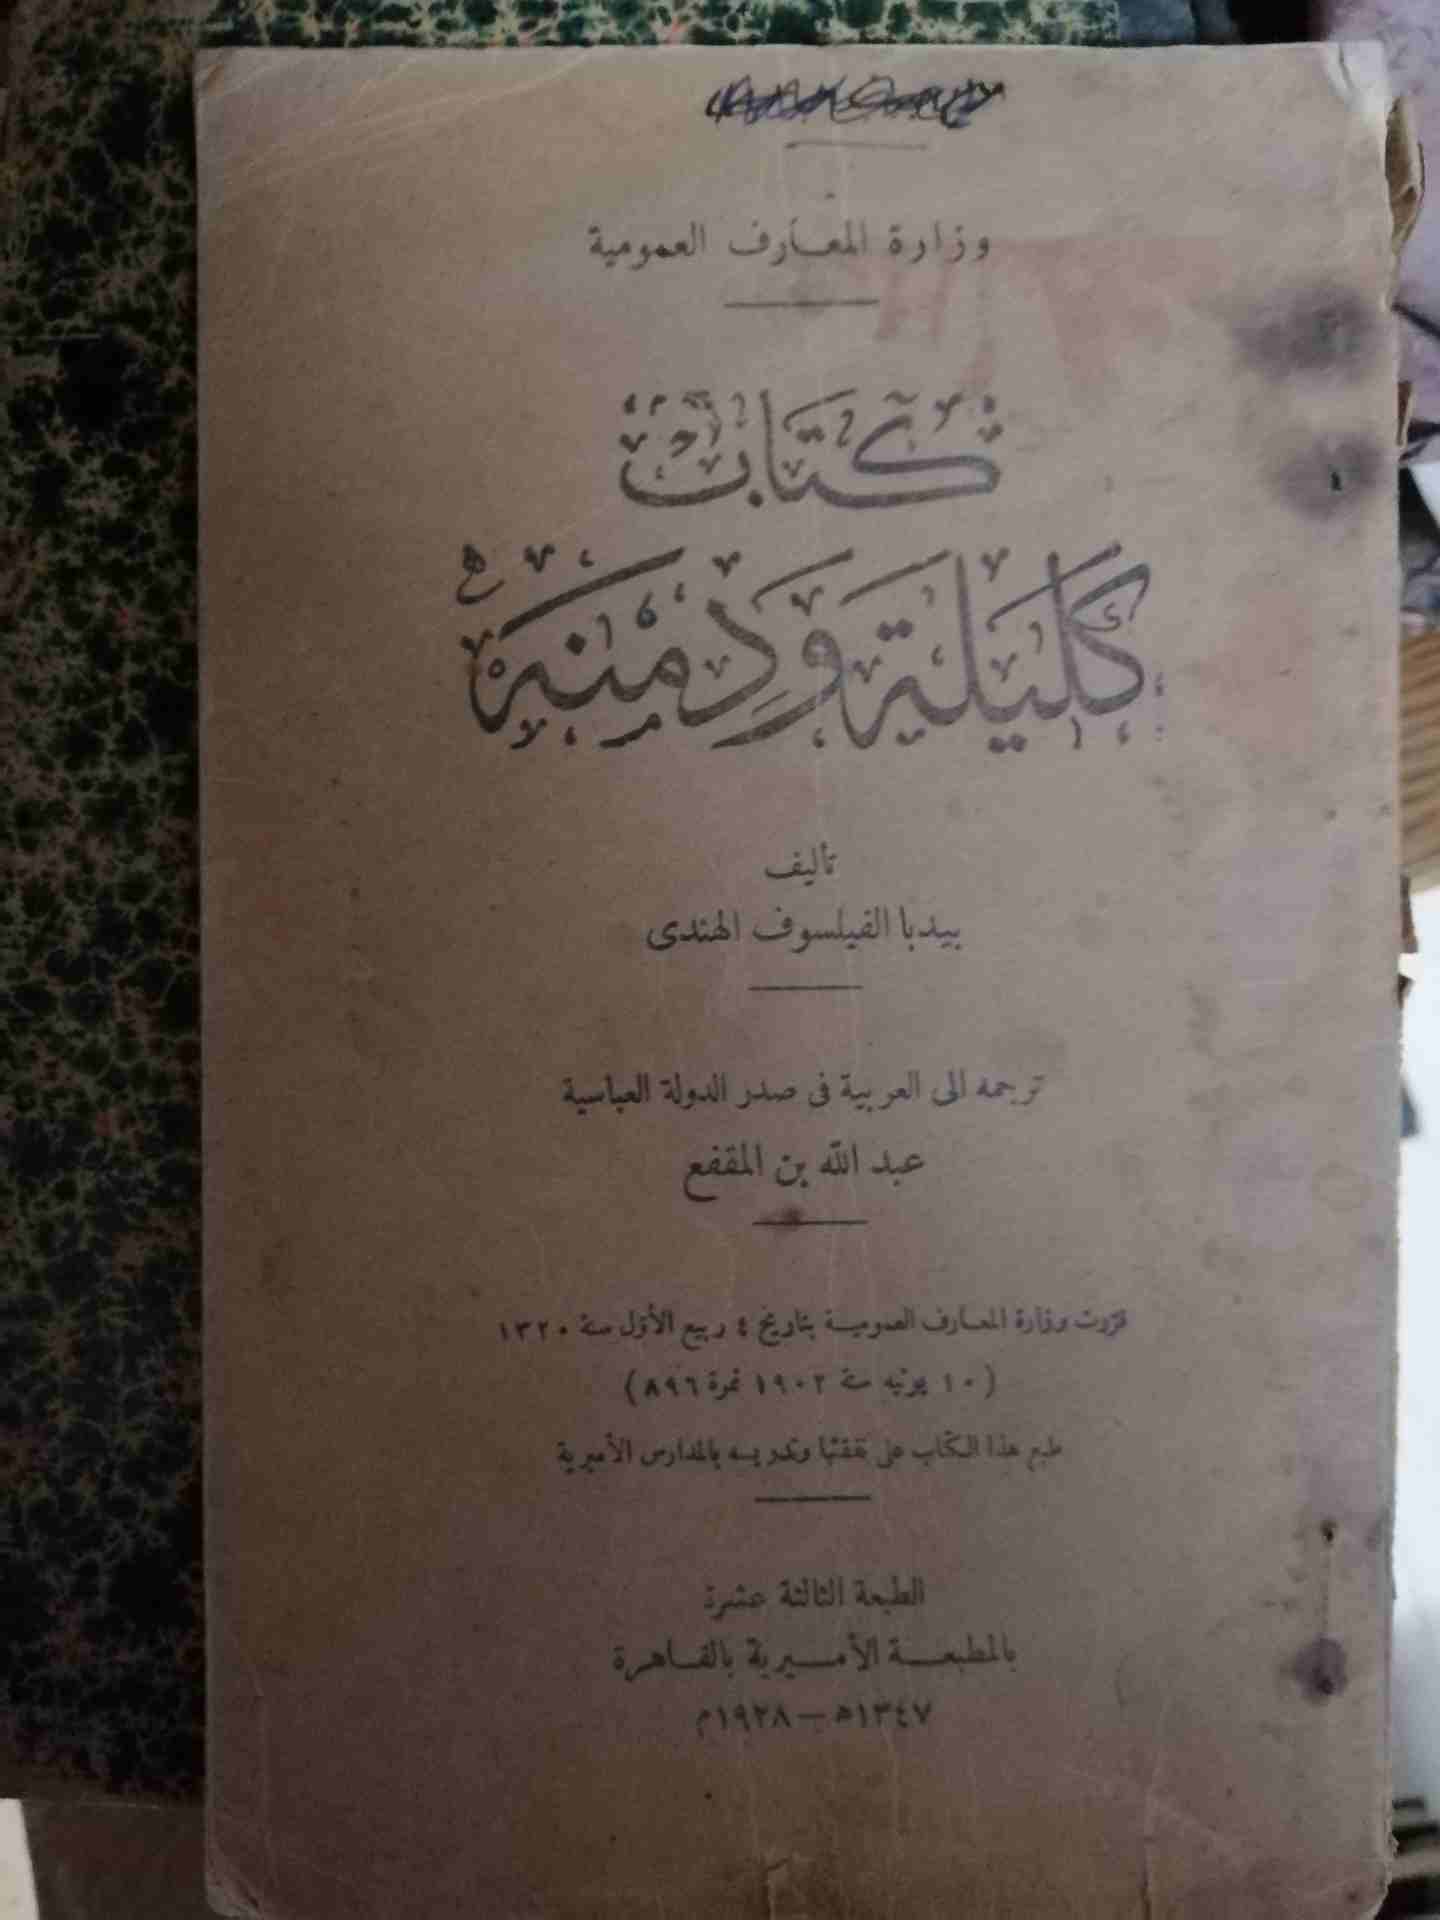 وزارة المعارف العمومية
كتاب
كليلة ودمنة
تأليف
بيدبا الفيلسوف الهندى
ترجمه الى العربية فى صدر الدولة العباسية
عبد الله بن المقفع
قررت وزارة المعارف العمومية بتاريخ ٤ ربيع الأول سنة ١٣٢٠
(١٠ يونيه سنة ١٩٠٢ نمرة ٨٩٦)
طبع هذا الكتاب على نفقتها وتدريسه بالمدارس الأميرية
الطبعة الثالثة عشرة
بالمطبعة الأميرية بالقاهرة
١٣٤٧ه – ١٩٢٨م